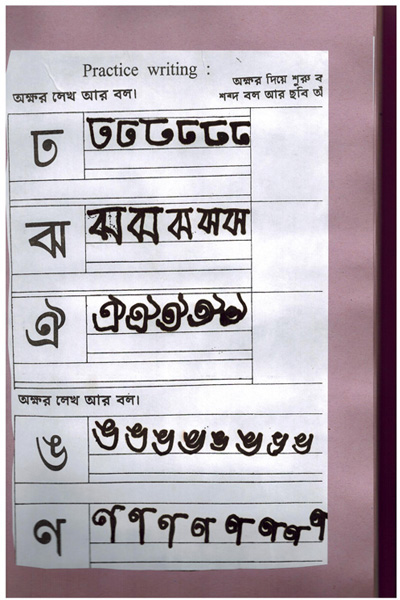 Practice writing :
অক্ষর দিয়ে শুরু ব
অক্ষর লেখ আর বল।
শব্দ বল আর ছবি আঁ
ঢ ঢ ঢ ঢ ঢ ঢ ঢ
ঝ ঝ ঝ ঝ ঝ ঝ
ঐ ঐ ঐ ঐ ঐ ঐ
অক্ষর লেখ আর বল।
ঙ ঙ ঙ ঙ ঙ ঙ ঙ ঙ ঙ
ণ ণ ণ ণ ণ ণ ণ ণ ণ